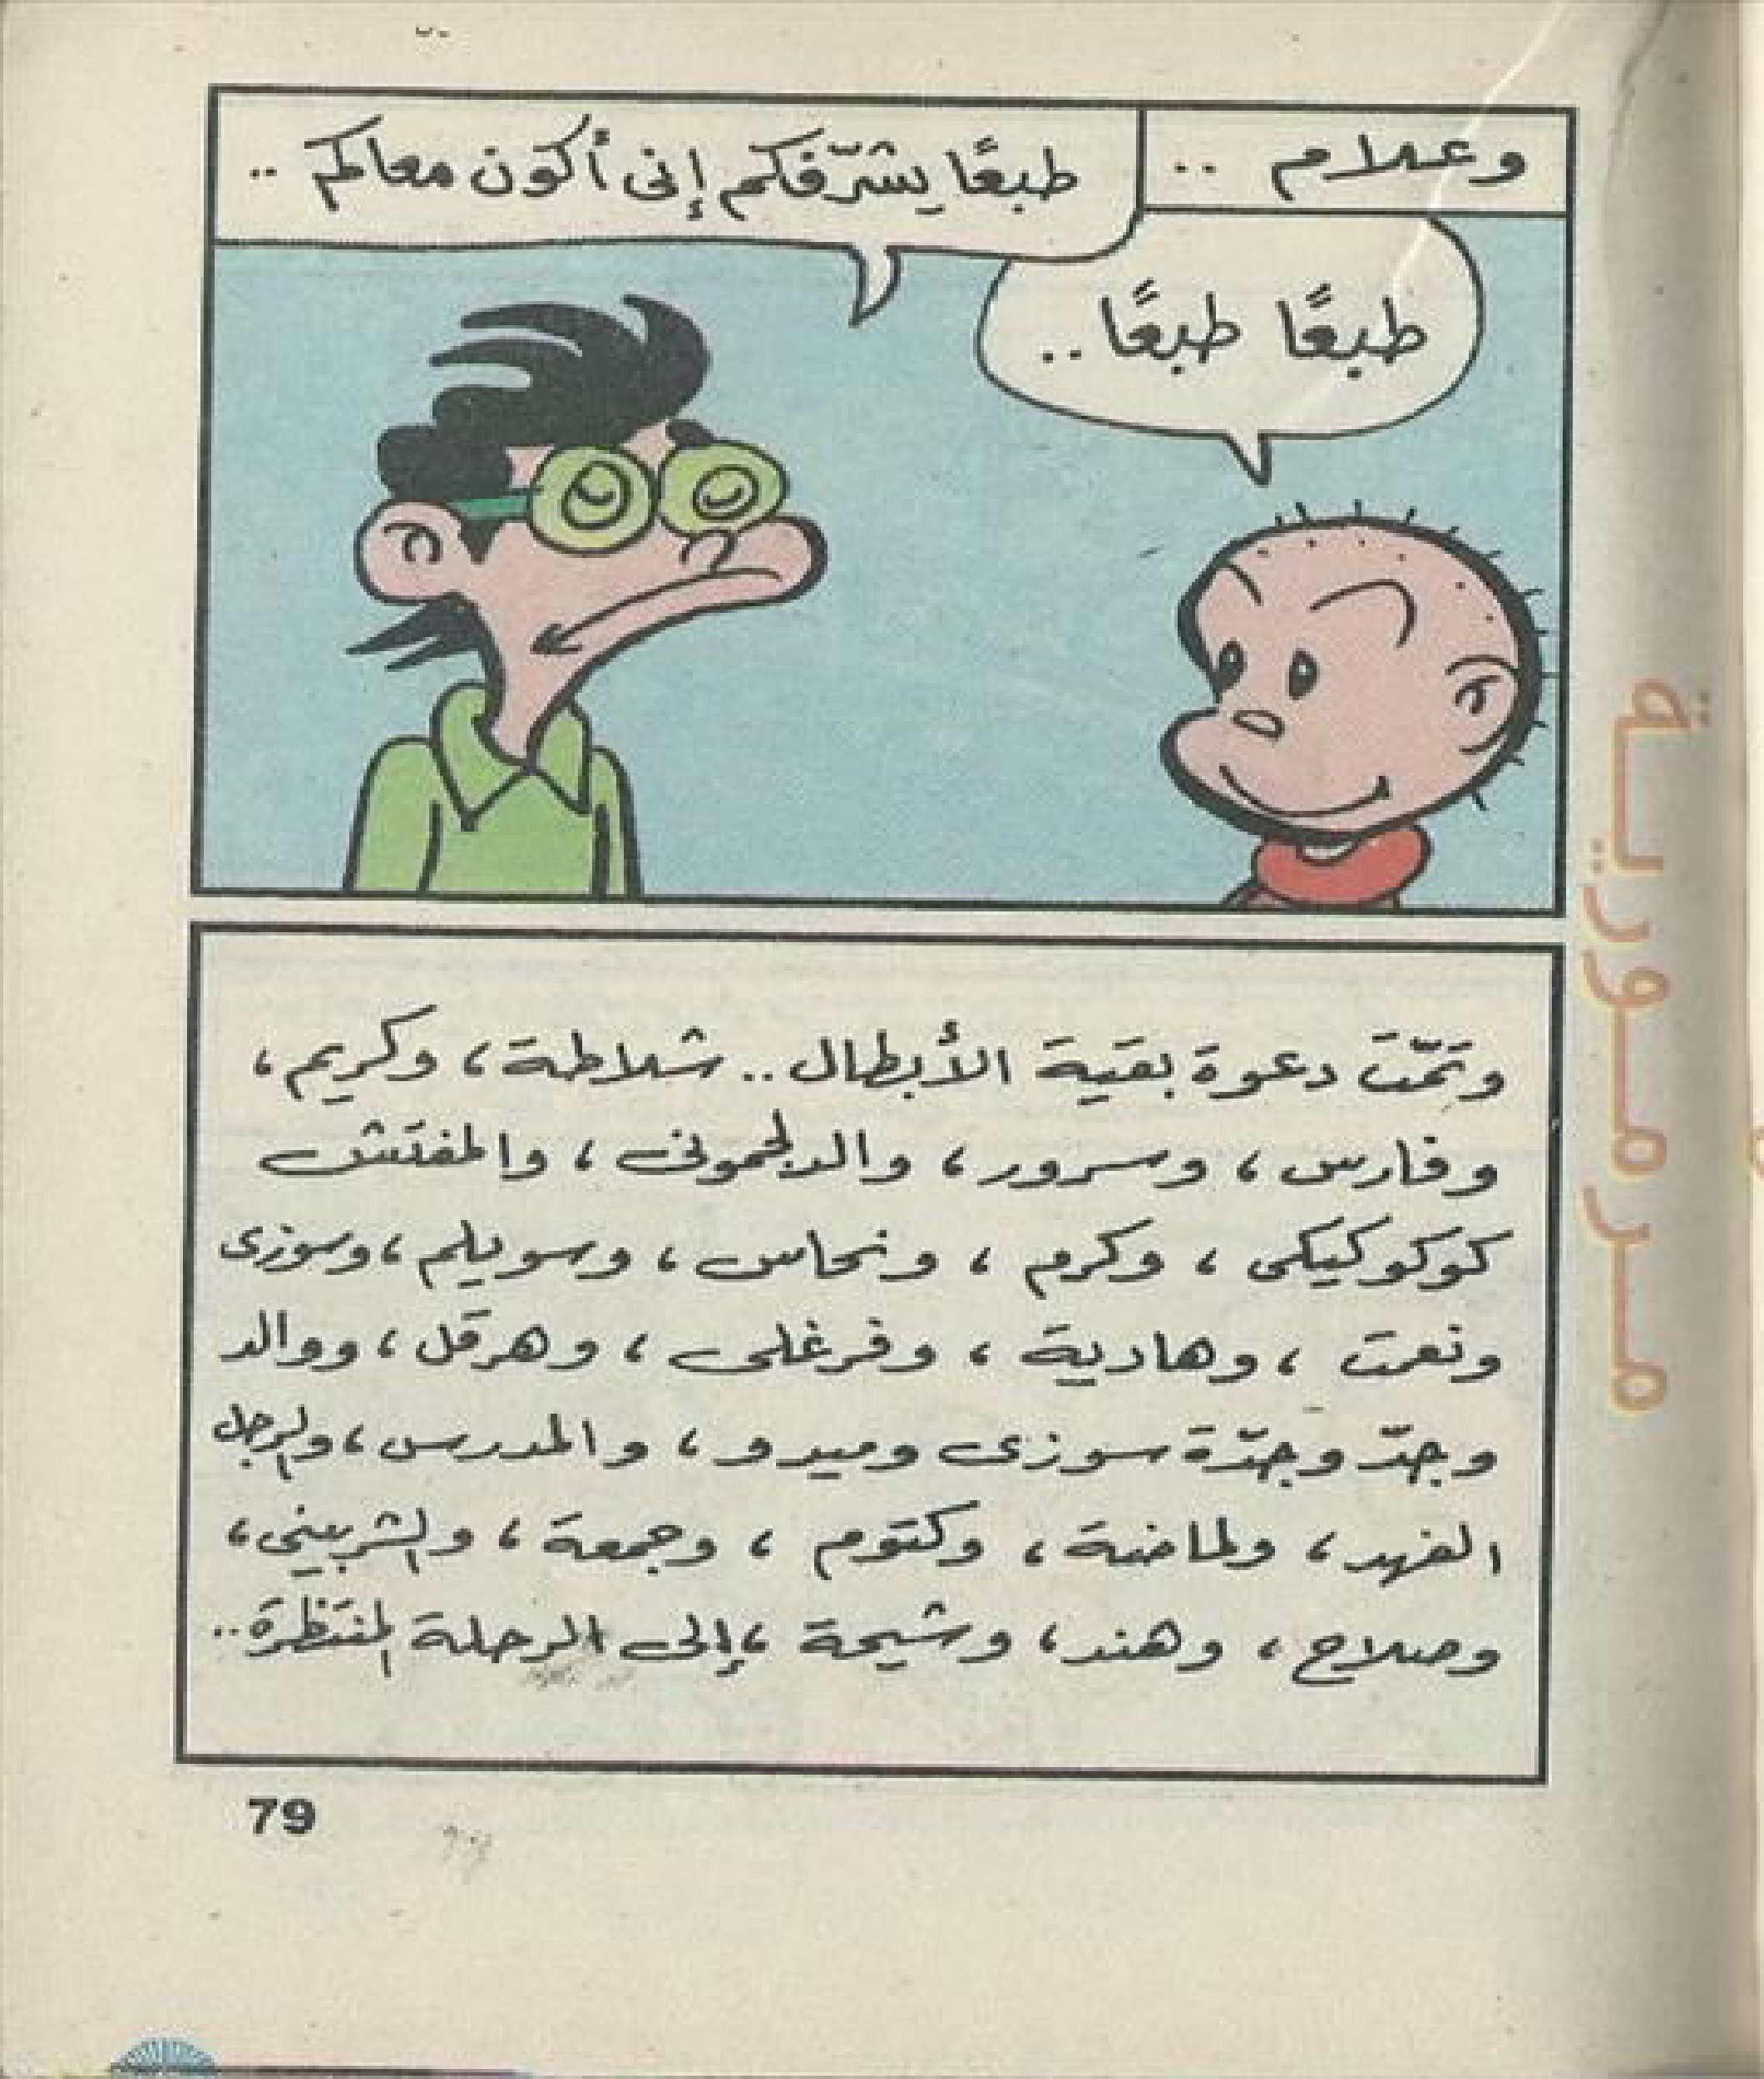 وعلام ..
طبعًا يشرّفكم إنى أكون معاكم ..
طبعًا طبعًا ..
وتمّت دعوة بقية الأبطال .. شلاطة ، وكريم ،
وفارس ، وسرور ، والدلجمونى ، والمفتش
كوكوكيكى ، وكرم ، ونحاس ، وسويلم ، وسوزى
ونعمت ، وهادية ، وفرغلى ، وهرقل ، ووالد
وجدّ وجدّة سوزى وميدو ، والمدرس ، والرجل
الفهد ، ولماضة ، وكتوم ، وجمعة ، والشربيني ،
وصلاح ، وهند ، وشيحة ، إلى الرحلة المنتظرة ..
79
مرمورية